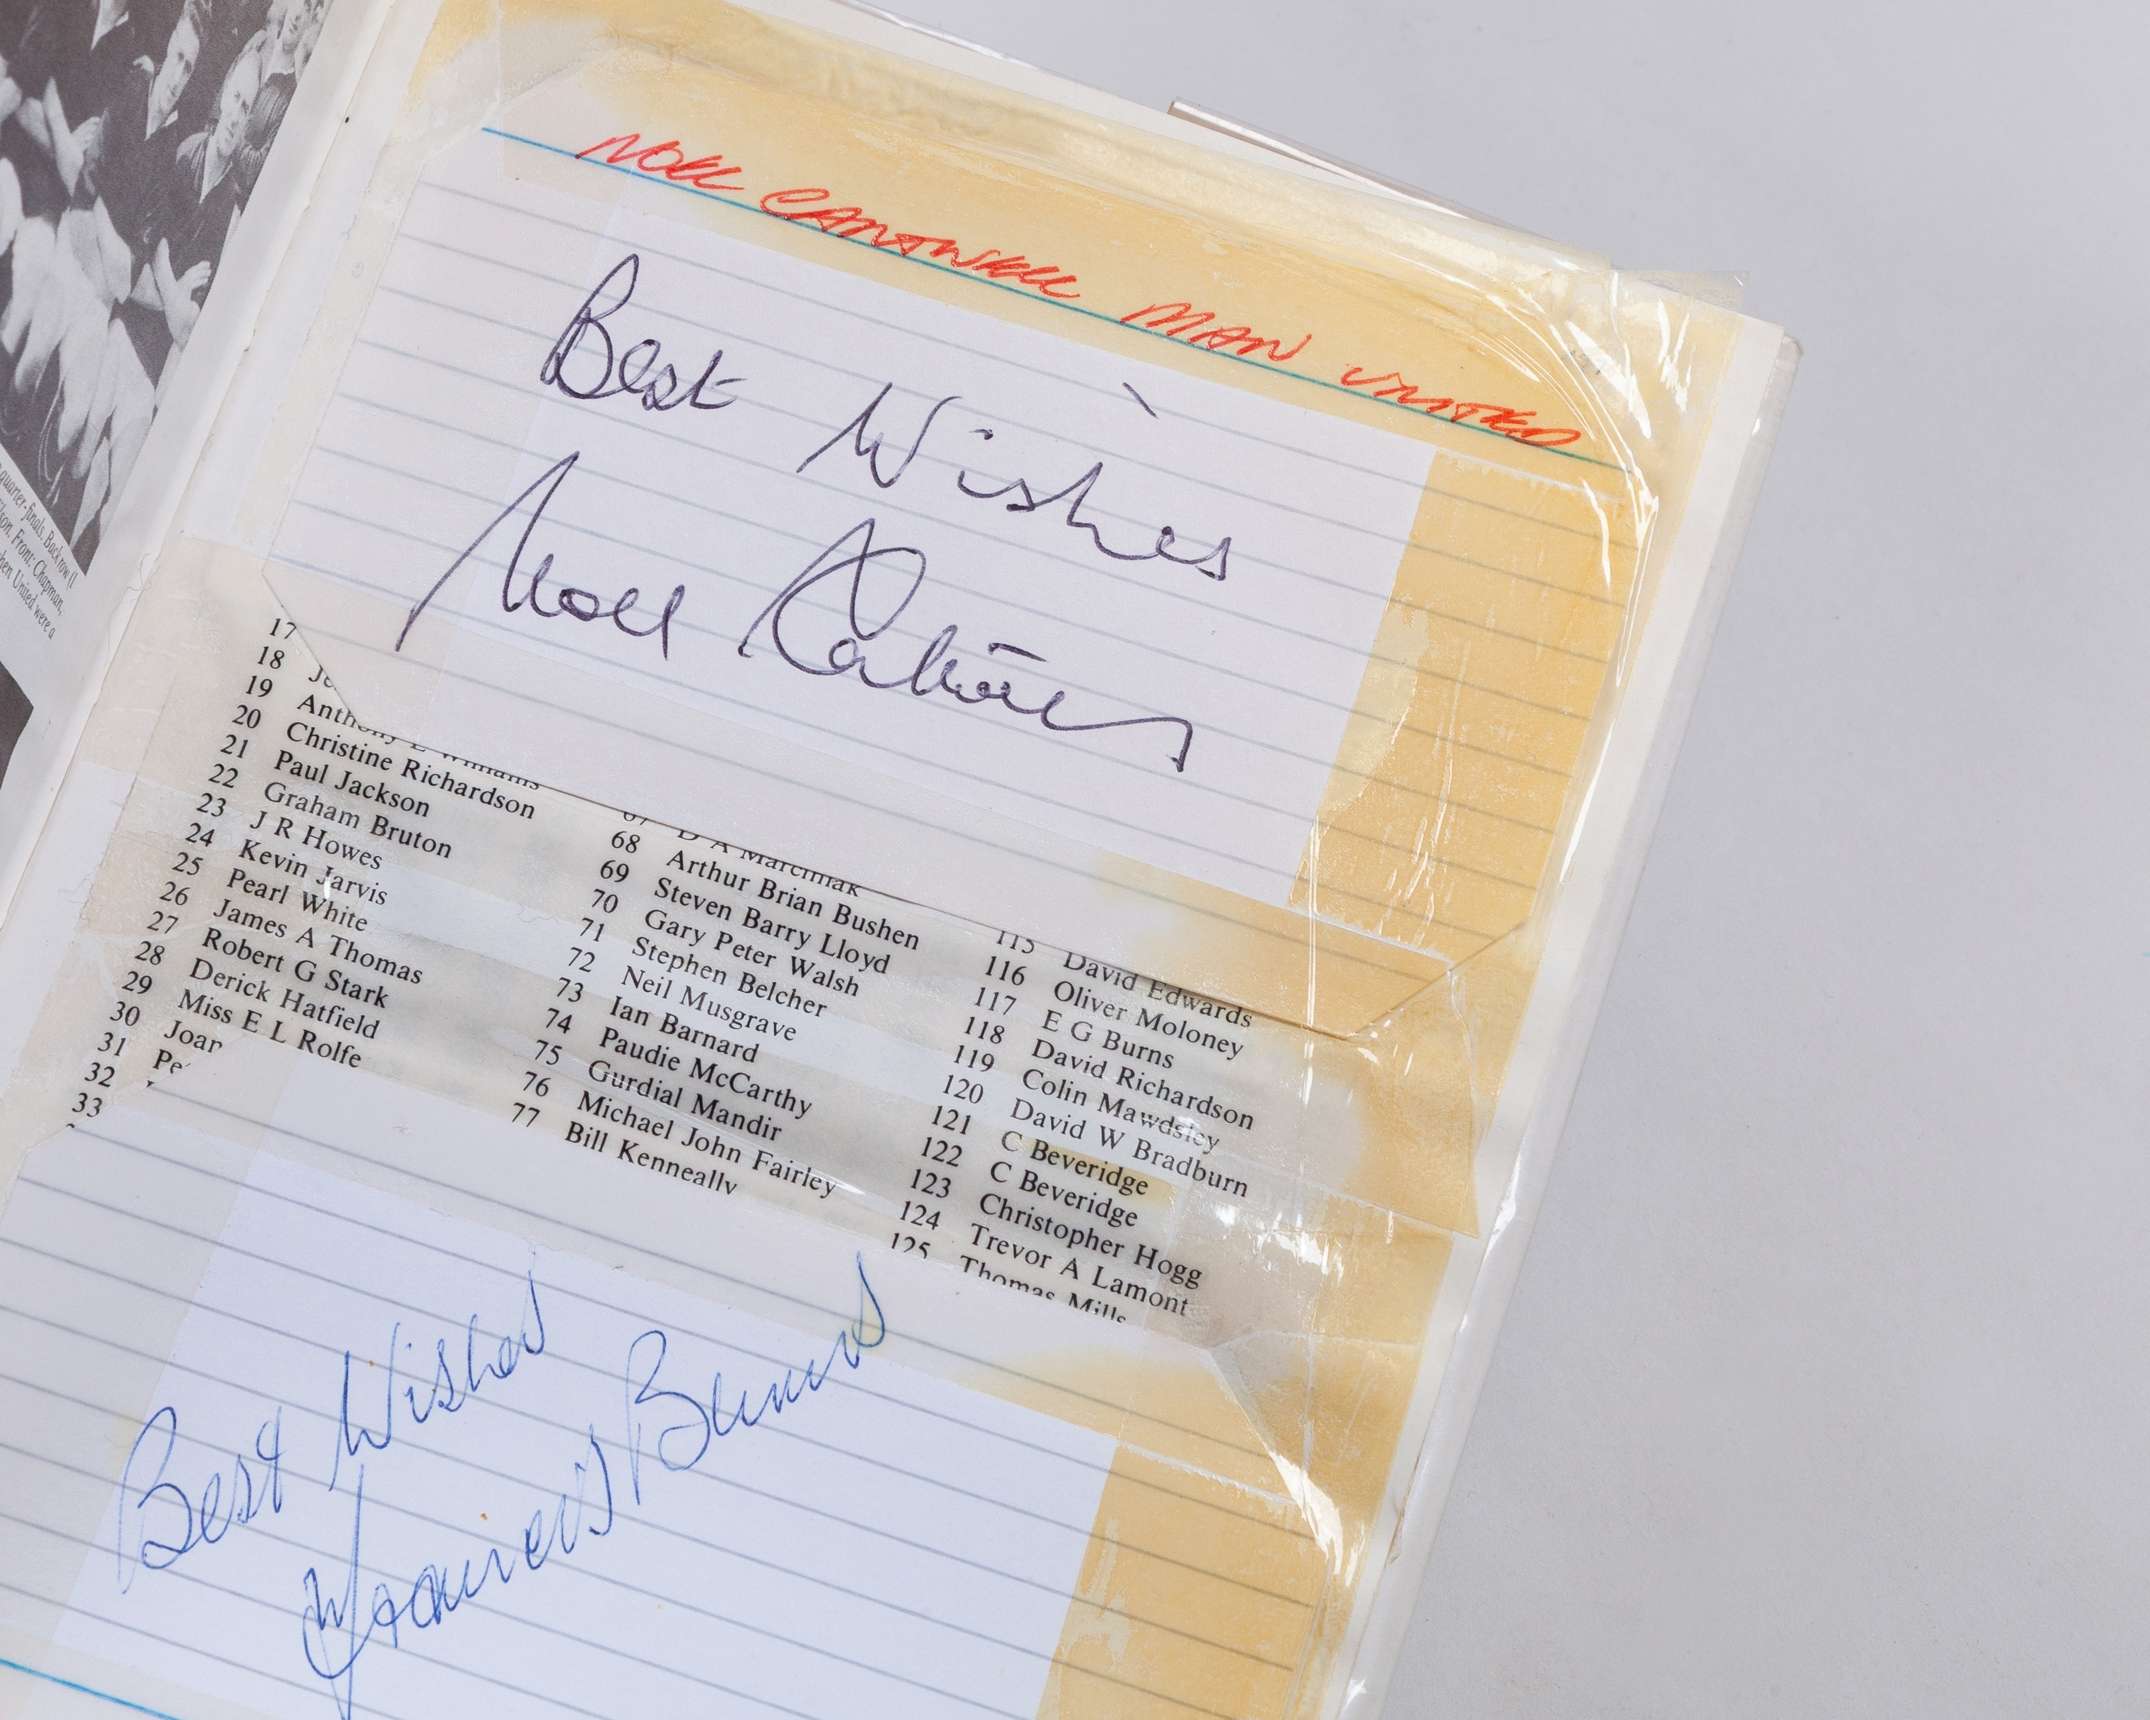 quarter-finals. Back row (l
son. Front: Chapman,
hen United were a
NOEL CANTWELL MAN UNITED
Best Wishes
Noel Cantwell
17
18
19 Anthony E Williams
20 Christine Richardson
21 Paul Jackson
22 Graham Bruton
23 J R Howes
24 Kevin Jarvis
25 Pearl White
26 James A Thomas
27 Robert G Stark
28 Derick Hatfield
29 Miss E L Rolfe
30
31
32
33
67 D A Marciniak
68 Arthur Brian Bushen
69 Steven Barry Lloyd
70 Gary Peter Walsh
71 Stephen Belcher
72 Neil Musgrave
73 Ian Barnard
74 Paudie McCarthy
75 Gurdial Mandir
76 Michael John Fairley
77 Bill Kenneally
115 David Edwards
116 Oliver Moloney
117 E G Burns
118 David Richardson
119 Colin Mawdsley
120 David W Bradburn
121 C Beveridge
122 C Beveridge
123 Christopher Hogg
124 Trevor A Lamont
125 Thomas Mills
Best Wishes
Francis Burns